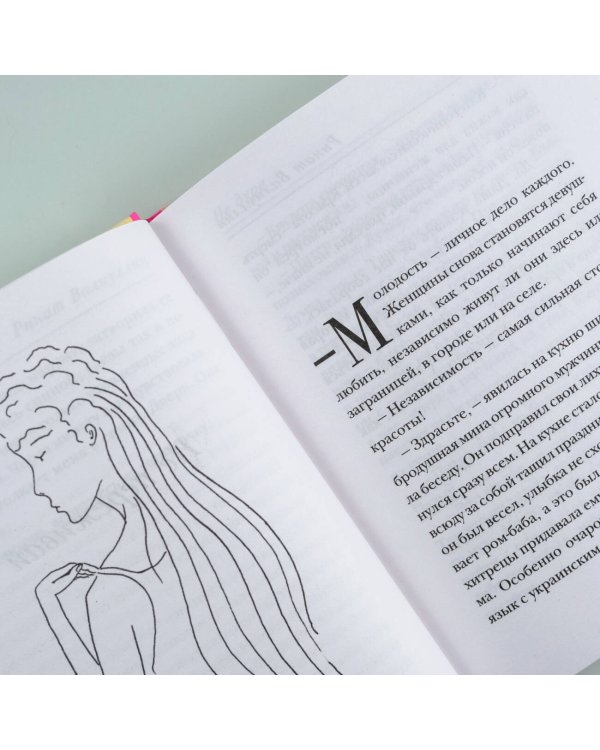 – Молодость – личное дело каждого.
Женщины снова становятся девуш-
ками, как только начинают себя
любить, независимо живут ли они здесь или
заграницей, в городе или на селе.
– Независимость – самая сильная сто
красоты!
– Здрасьте, – явилась на кухню ши
бродушная мина огромного мужчин
ла беседу. Он подправил свои лих
нулся сразу всем. На кухне стал
всюду за собой тащил праздни
он был весел, улыбка не схо
вает ром-баба, а это был
хитрецы придавала ем
ма. Особенно очаро
язык с украинским